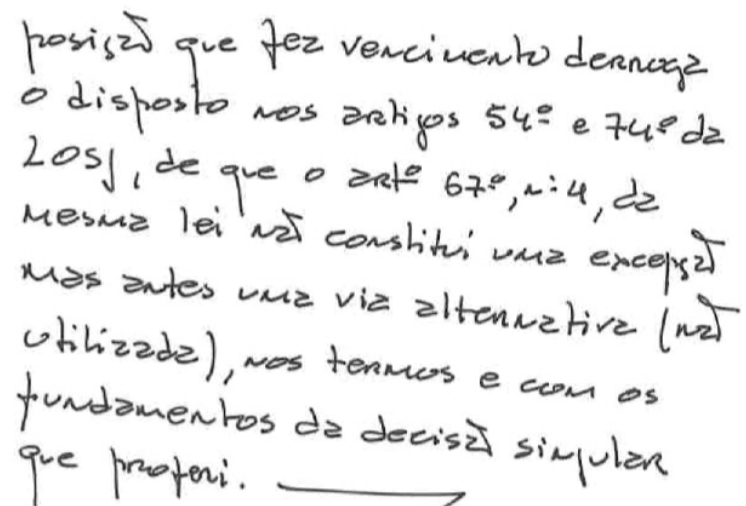 posição que fez vencimento derroga
o disposto nos artigos 54º e 74º da
LOSJ, de que o artº 67º, nº 4, da
mesma lei não constitui uma excepção
mas antes uma via alternativa (não
utilizada), nos termos e com os
fundamentos da decisão singular
que proferi.